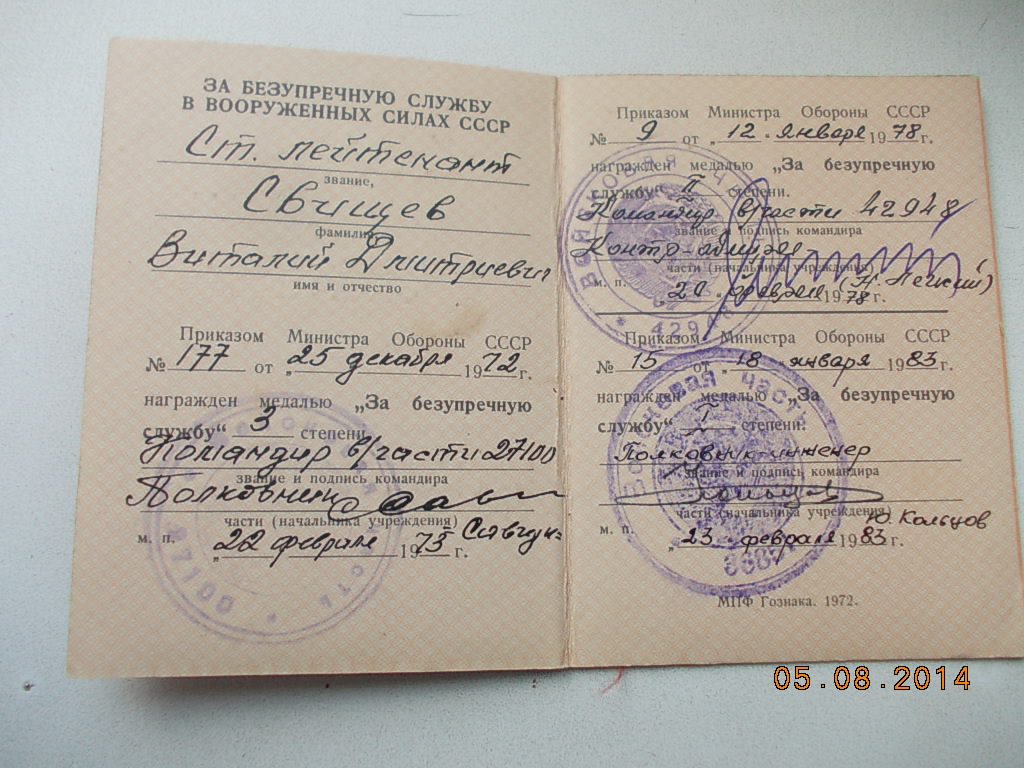 ЗА БЕЗУПРЕЧНУЮ СЛУЖБУ
В ВООРУЖЕННЫХ СИЛАХ СССР
Ст. лейтенант
звание,
Свищев
фамилия
Виталий Дмитриевич
имя и отчество
Приказом Министра Обороны СССР
№ 177 от „25 декабря 1972 г.
награжден медалью „За безупречную
службу“ 3 степени.
Командир в/части 27100
звание и подпись командира
Полковник
части (начальника учреждения)
м. п. „22 февраля 1973 г.
Приказом Министра Обороны СССР
№ 9 от „12 января 1978 г.
награжден медалью „За безупречную
службу“ II степени.
Командир в/части 42948
звание и подпись командира
Контр-адмирал
части (начальника учреждения)
м. п. „20 февраля 1978 г.
Приказом Министра Обороны СССР
№ 15 от „18 января 1983 г.
награжден медалью „За безупречную
службу“ I степени.
Полковник-инженер
звание и подпись командира
части (начальника учреждения)
Ю. Кольцов
м. п. „23 февраля 1983 г.
МПФ Гознака. 1972.
05.08.2014